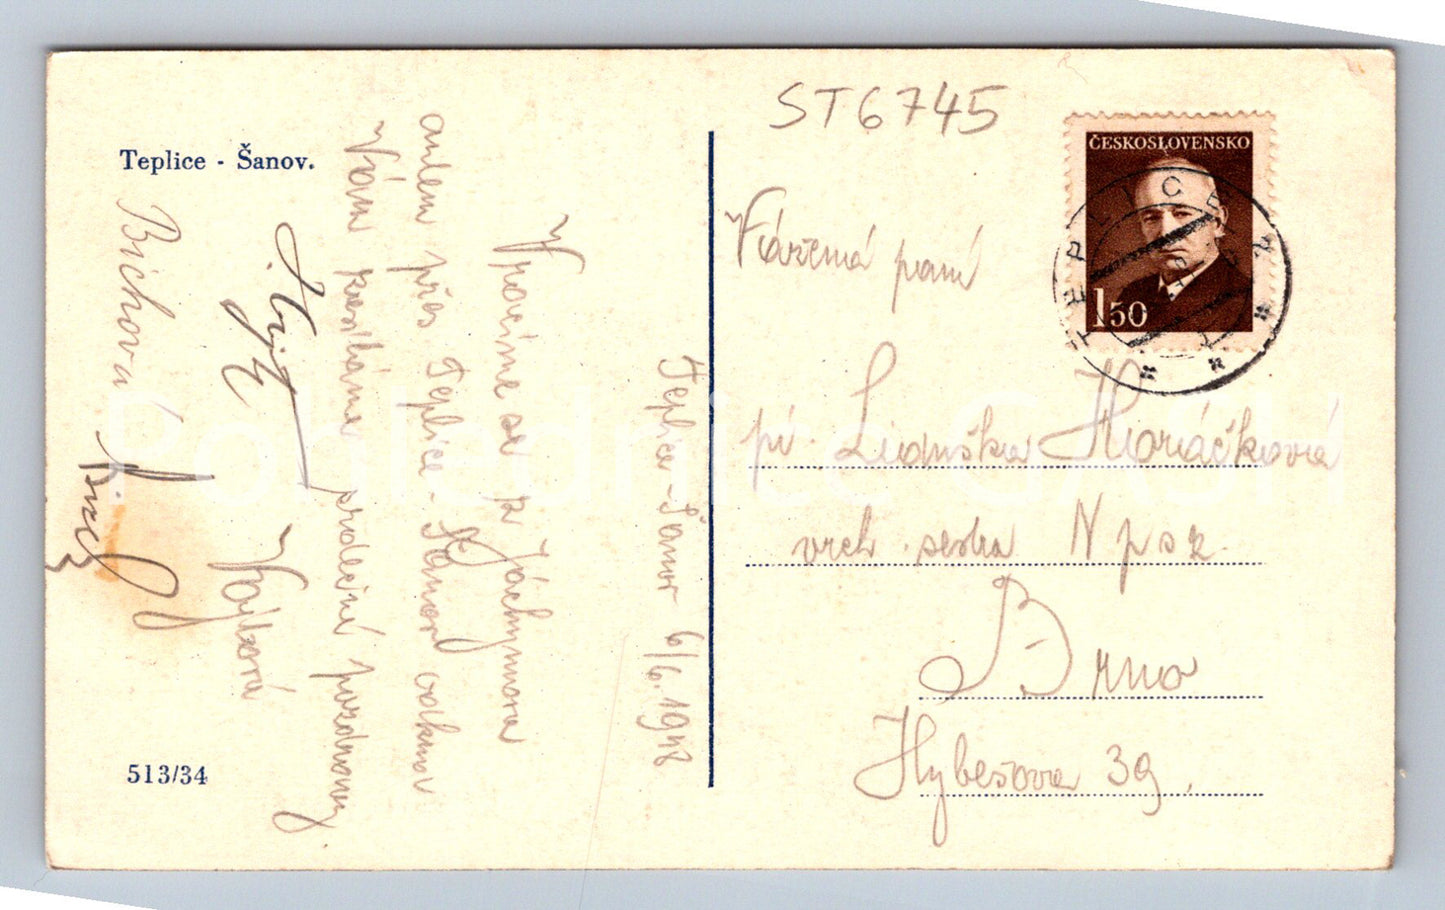 Teplice - Šanov.
ST6745
ČESKOSLOVENSKO
1 50
TEPLICE
Teplice - Šanov 6/6. 1948
Vracíme se z Jáchymova
autem přes Teplice - Šanov odkud
Vám zasíláme srdečné pozdravy
Vojtková
Bichova
Vážená paní
pí. Liduška Horáčková
vrch. sestra
Brno
Hybešova 39.
513/34
Pohlednice CASH